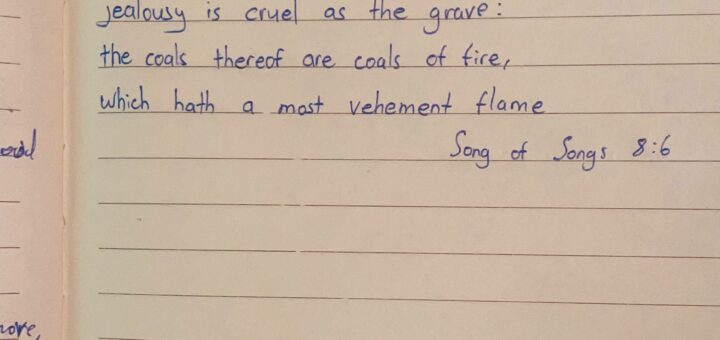 jealousy is cruel as the grave:
the coals thereof are coals of fire,
which hath a most vehement flame
Song of Songs 8:6